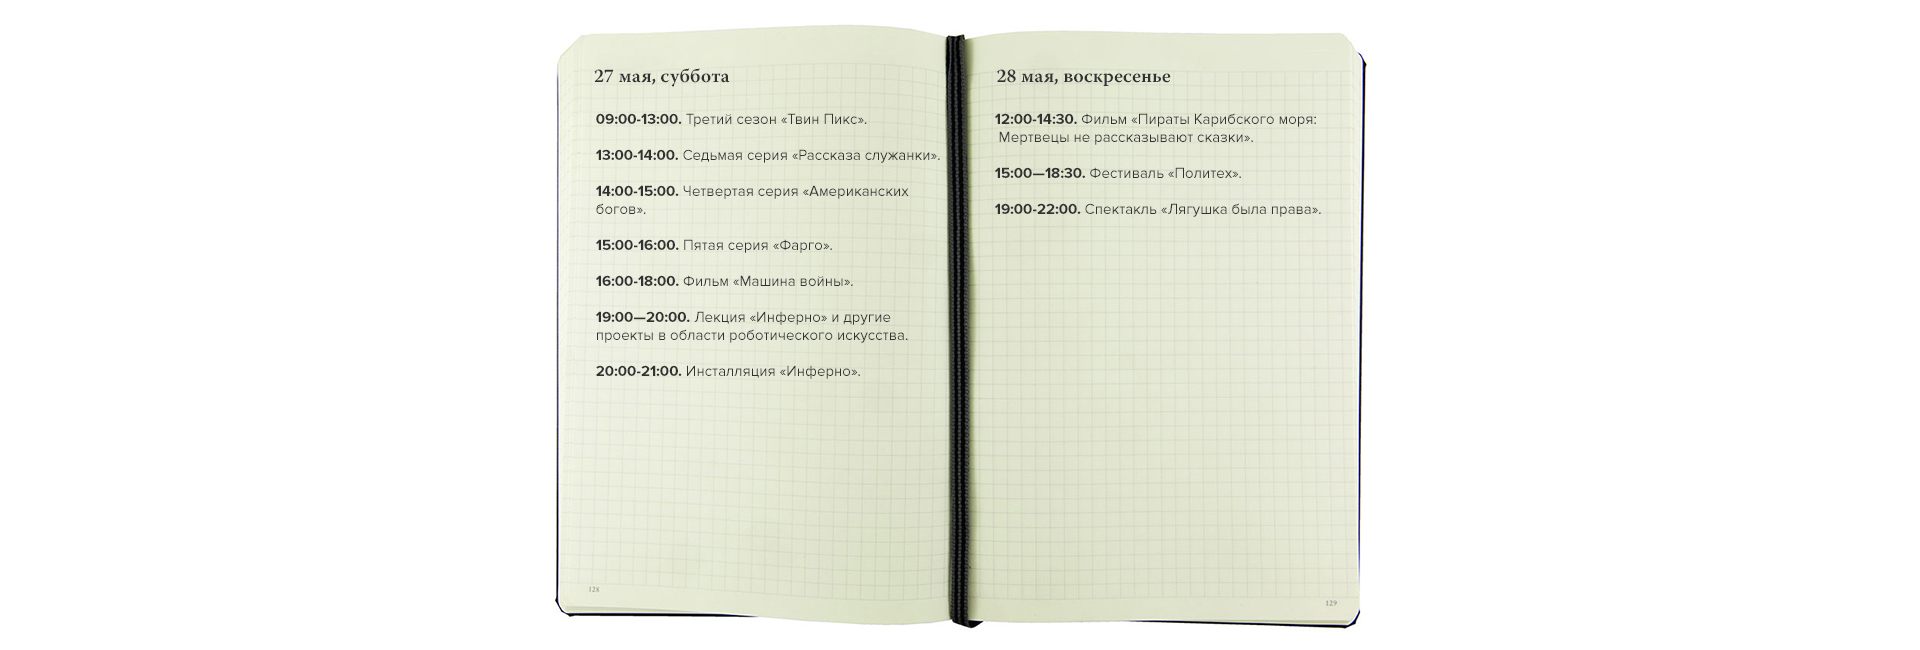 27 мая, суббота
09:00-13:00. Третий сезон «Твин Пикс».
13:00-14:00. Седьмая серия «Рассказа служанки».
14:00-15:00. Четвертая серия «Американских
богов».
15:00-16:00. Пятая серия «Фарго».
16:00-18:00. Фильм «Машина войны».
19:00—20:00. Лекция «Инферно» и другие
проекты в области роботического искусства.
20:00-21:00. Инсталляция «Инферно».
128
28 мая, воскресенье
12:00-14:30. Фильм «Пираты Карибского моря:
Мертвецы не рассказывают сказки».
15:00—18:30. Фестиваль «Политех».
19:00-22:00. Спектакль «Лягушка была права».
129